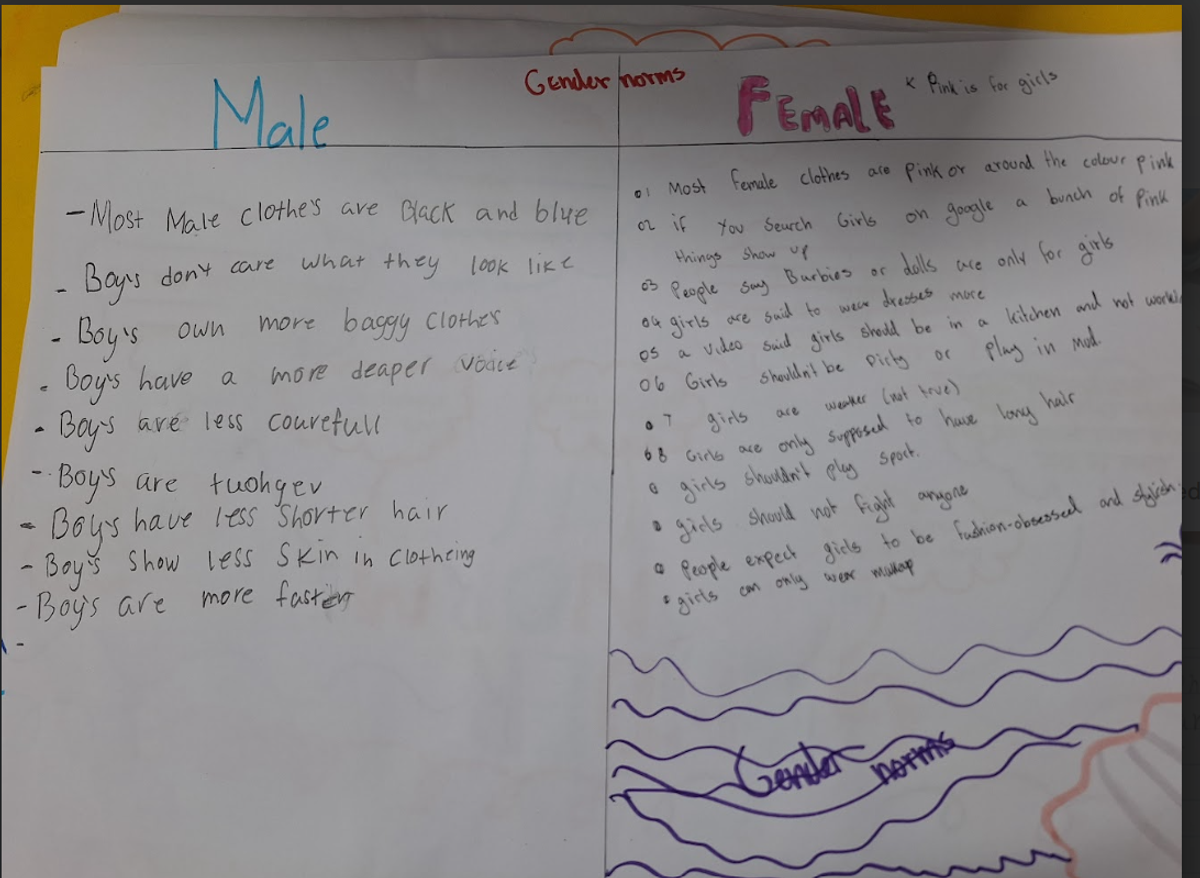 Gender norms
Male
- Most Male clothe's are Black and blue
- Boy's don't care what they look like
- Boy's own more baggy clothe's
- Boy's have a more deaper voice
- Boy's are less courefull
- Boy's are tuohgev
- Boy's have less shorter hair
- Boy's show less skin in clotheing
- Boy's are more faster
-
FEMALE
< Pink is for girls
01 Most female clothes are pink or around the colour pink
02 if you search Girls on google a bunch of Pink
things show up
03 People say Barbies or dolls are only for girls
04 girls are said to wear dresses more
05 a video said girls should be in a kitchen and not
06 Girls shouldn't be Dirty or play in mud.
• 7 girls are weaker (not true)
08 Girls are only supposed to have long hair
• girls shouldn't play sport.
• girls should not fight anyone
• People expect girls to be fashion-obsessed and stylish
• girls can only wear makeup
Gender norms